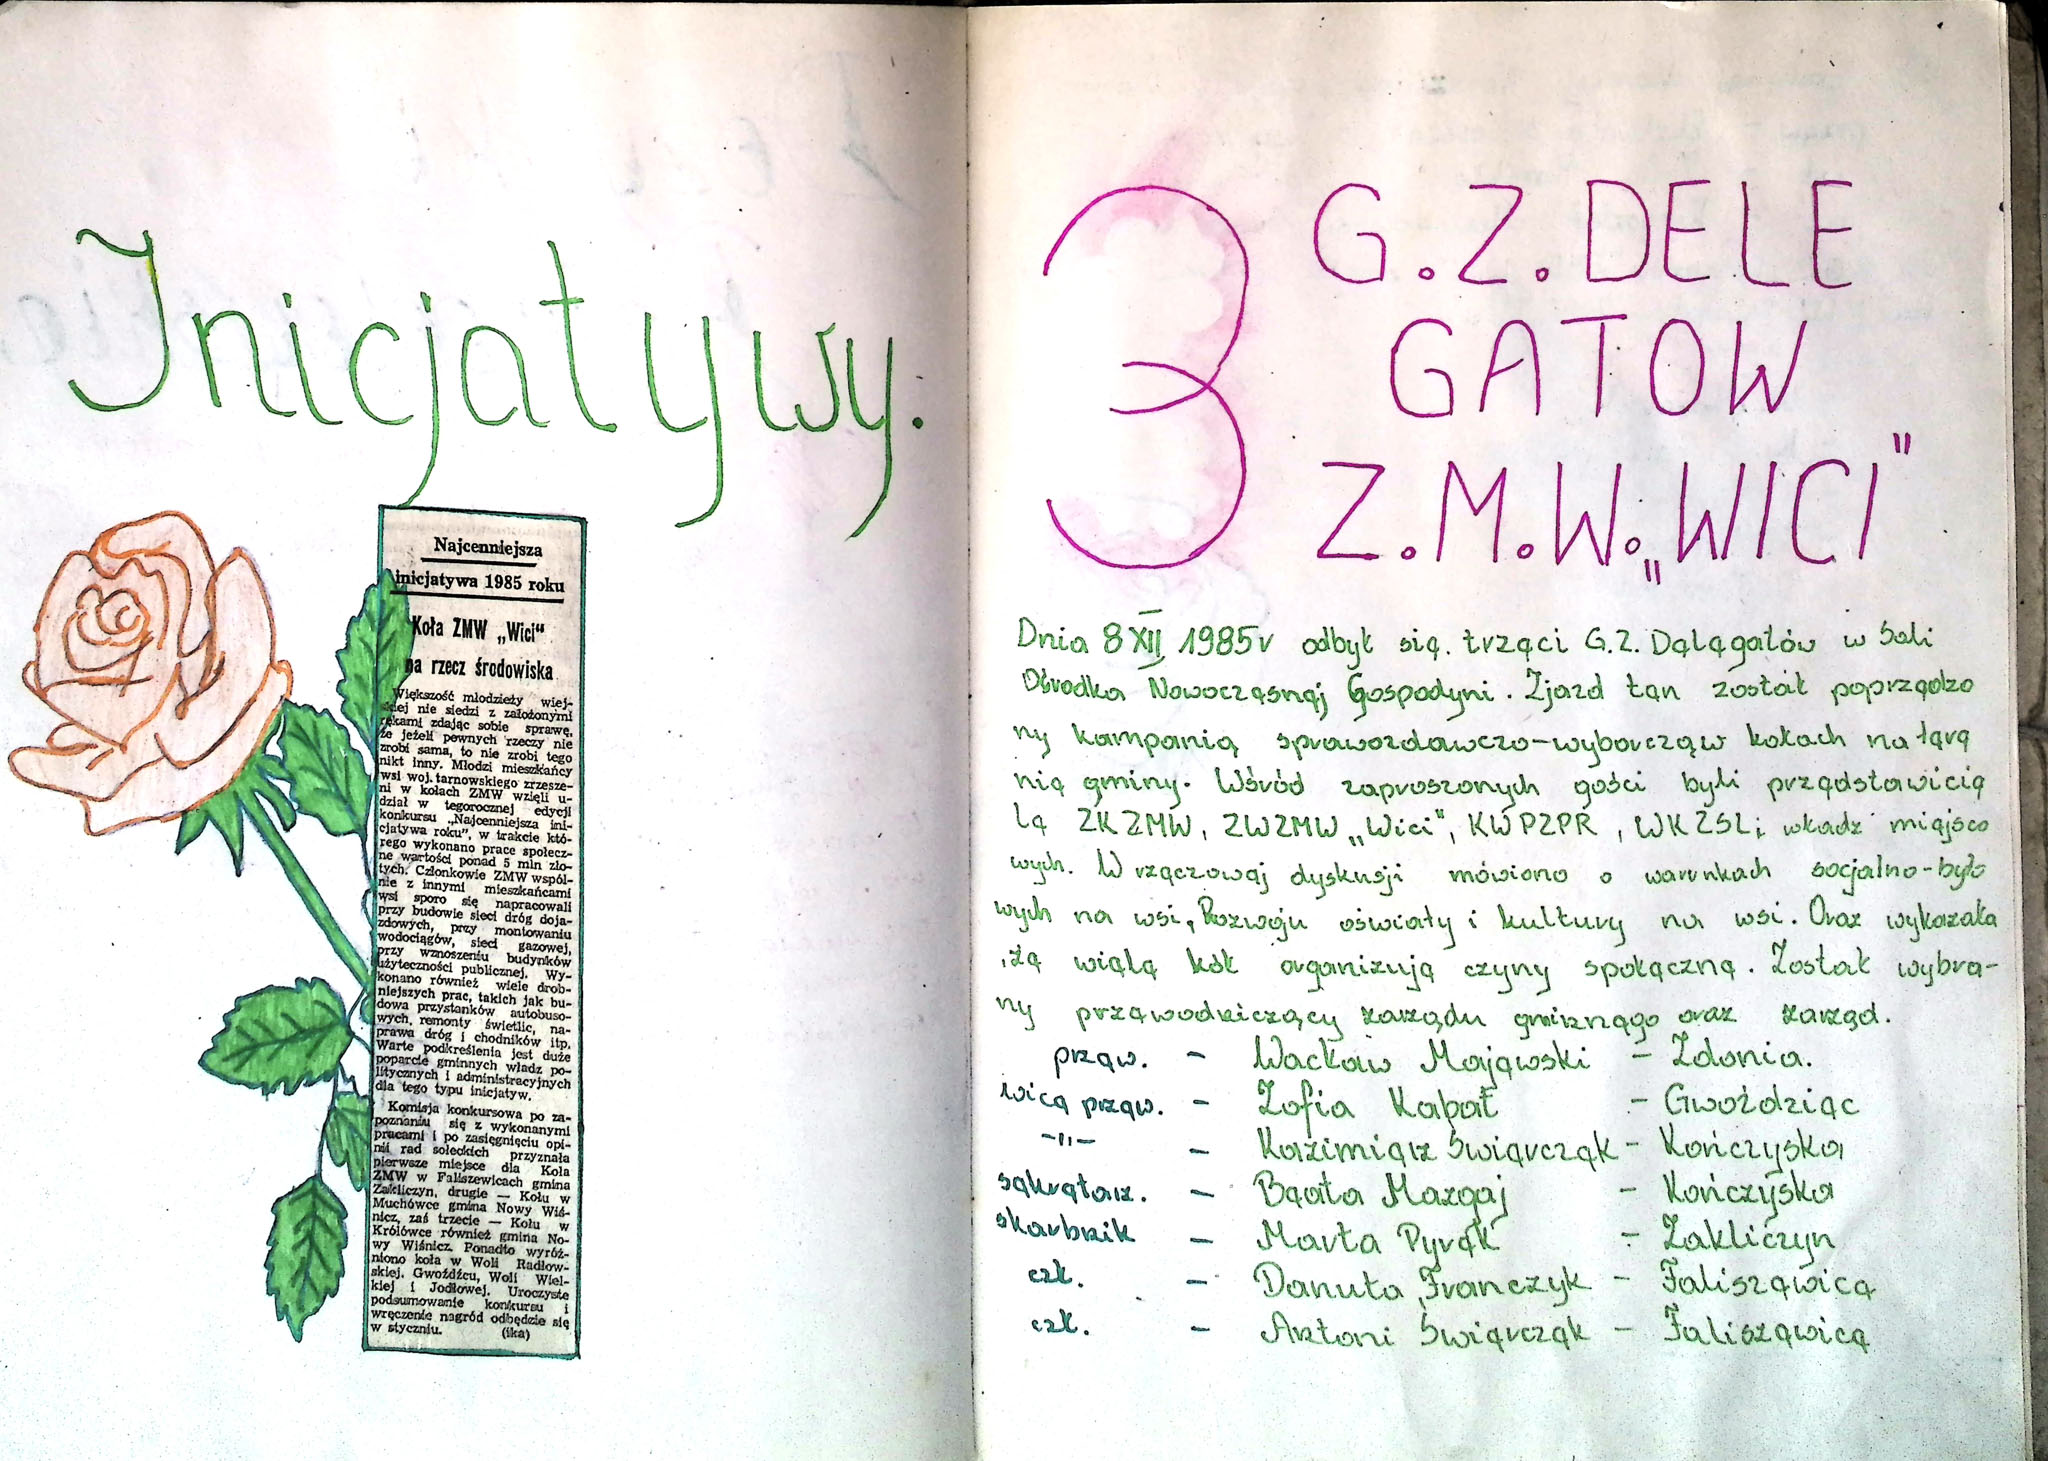 Inicjatywy.
Najcenniejsza
inicjatywa 1985 roku
Koła ZMW „Wici"
na rzecz środowiska
Większość młodzieży wiej-
skiej nie siedzi z założonymi
rękami zdając sobie sprawę,
że jeżeli pewnych rzeczy nie
zrobi sama, to nie zrobi tego
nikt inny. Młodzi mieszkańcy
wsi woj. tarnowskiego zrzesze-
ni w kołach ZMW wzięli u-
dział w tegorocznej edycji
konkursu „Najcenniejsza ini-
cjatywa roku", w trakcie któ-
rego wykonano prace społecz-
ne wartości ponad 5 mln zło-
tych. Członkowie ZMW wspól-
nie z innymi mieszkańcami
wsi sporo się napracowali
przy budowie sieci dróg doja-
zdowych, przy montowaniu
wodociągów, sieci gazowej,
przy wznoszeniu budynków
użyteczności publicznej. Wy-
konano również wiele drob-
niejszych prac, takich jak bu-
dowa przystanków autobuso-
wych, remonty świetlic, na-
prawa dróg i chodników itp.
Warte podkreślenia jest duże
poparcie gminnych władz po-
litycznych i administracyjnych
dla tego typu inicjatyw.
Komisja konkursowa po za-
poznaniu się z wykonanymi
pracami i po zasięgnięciu opi-
nii rad sołeckich przyznała
pierwsze miejsce dla Koła
ZMW w Faliszewicach gmina
Zakliczyn, drugie — Kołu w
Muchówce gmina Nowy Wiś-
nicz, zaś trzecie — Kołu w
Królówce również gmina No-
wy Wiśnicz. Ponadto wyróż-
niono koła w Woli Radłow-
skiej, Gwoźdźcu, Woli Wiel-
kiej i Jodłowej. Uroczyste
podsumowanie konkursu i
wręczenie nagród odbędzie się
w styczniu. (ika)
3 G.Z.DELE
GATOW
Z.M.W. „WICI"
Dnia 8 XII 1985r odbył się. trzeci G.Z. Delegatów w Sali
Ośrodka Nowoczesnej Gospodyni. Zjazd ten został poprzedzo
ny kampanią sprawozdawczo-wyborczą w kołach na tere
nie gminy. Wśród zaproszonych gości byli przedstawicie
le ZKZMW, ZWZMW „Wici", KWPZPR, WKZSL i władz miejsco
wych. W rzeczowej dyskusji mówiono o warunkach socjalno-byto
wych na wsi, Rozwoju oświaty i kultury na wsi. Oraz wykazała
,że wiele kół organizuje czyny społeczne. Został wybra-
ny przewodniczący zarządu gminnego oraz zarząd.
przew. - Wacław Majewski - Zdonia.
wice przew. - Zofia Kapał - Gwoździec
-"- - Kazimierz Świerczek - Kończyska
sekretarz. - Beata Mazgaj - Kończyska
skarbnik - Marta Pyrek - Zakliczyn
czł. - Danuta Franczyk - Faliszewice
czł. - Antoni Świerczek - Faliszewice